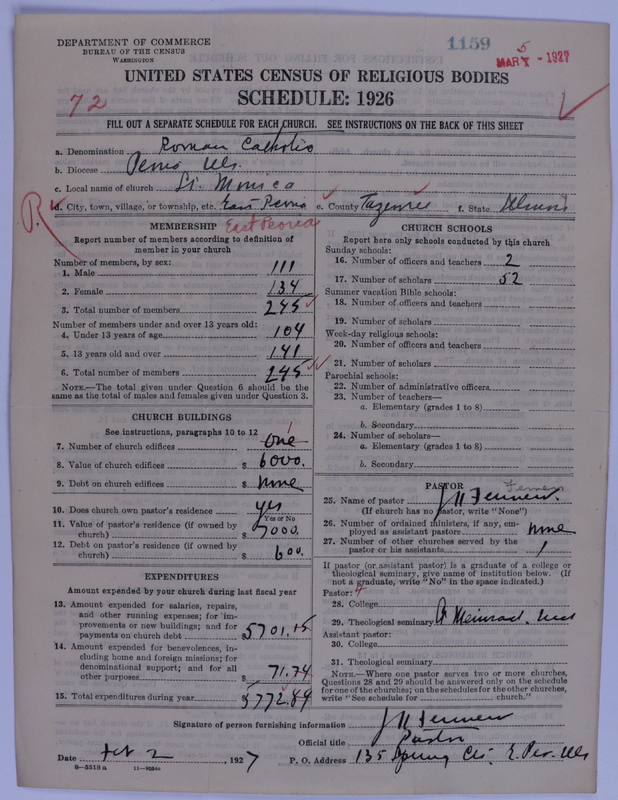 DEPARTMENT OF COMMERCE
BUREAU OF THE CENSUS
WASHINGTON
1159
MAR 5 - 1927
UNITED STATES CENSUS OF RELIGIOUS BODIES
SCHEDULE: 1926
72
FILL OUT A SEPARATE SCHEDULE FOR EACH CHURCH. SEE INSTRUCTIONS ON THE BACK OF THIS SHEET
a. Denomination Roman Catholic
b. Diocese Peoria Ills.
c. Local name of church St. Monica
d. City, town, village, or township, etc. East Peoria e. County Tazewell f. State Illinois
R
East Peoria
MEMBERSHIP
Report number of members according to definition of
member in your church
Number of members, by sex:
1. Male 111
2. Female 134
3. Total number of members 245
Number of members under and over 13 years old:
4. Under 13 years of age 104
5. 13 years old and over 141
6. Total number of members 245
NOTE.—The total given under Question 6 should be the
same as the total of males and females given under Question 3.
CHURCH BUILDINGS
See instructions, paragraphs 10 to 12
7. Number of church edifices one
8. Value of church edifices $ 6000.
9. Debt on church edifices $ none
10. Does church own pastor's residence yes
Yes or No
11. Value of pastor's residence (if owned by
church) $ 7000.
12. Debt on pastor's residence (if owned by
church) $ 600.
EXPENDITURES
Amount expended by your church during last fiscal year
13. Amount expended for salaries, repairs,
and other running expenses; for im-
provements or new buildings; and for
payments on church debt 5701.15
14. Amount expended for benevolences, in-
cluding home and foreign missions; for
denominational support; and for all
other purposes $ 71.74
15. Total expenditures during year 5772.89
CHURCH SCHOOLS
Report here only schools conducted by this church
Sunday schools:
16. Number of officers and teachers 2
17. Number of scholars 52
Summer vacation Bible schools:
18. Number of officers and teachers
19. Number of scholars
Week-day religious schools:
20. Number of officers and teachers
21. Number of scholars
Parochial schools:
22. Number of administrative officers
23. Number of teachers—
a. Elementary (grades 1 to 8)
b. Secondary
24. Number of scholars—
a. Elementary (grades 1 to 8)
b. Secondary
PASTOR
25. Name of pastor J H
(If church has no pastor, write "None")
26. Number of ordained ministers, if any, em-
ployed as assistant pastors none
27. Number of other churches served by the
pastor or his assistants 1
If pastor (or assistant pastor) is a graduate of a college or
theological seminary, give name of institution below. (If
not a graduate, write "No" in the space indicated.)
Pastor:
28. College
29. Theological seminary St Meinrad, Ind
Assistant pastor:
30. College
31. Theological seminary
NOTE.—Where one pastor serves two or more churches,
Questions 28 and 29 should be answered only on the schedule
for one of the churches; on the schedules for the other churches,
write "See schedule for church."
Signature of person furnishing information J H
Official title Pastor
Date Feb 2, 1927 P. O. Address 135 Spring E. Peo. Ills
8—5513a 11—9054a